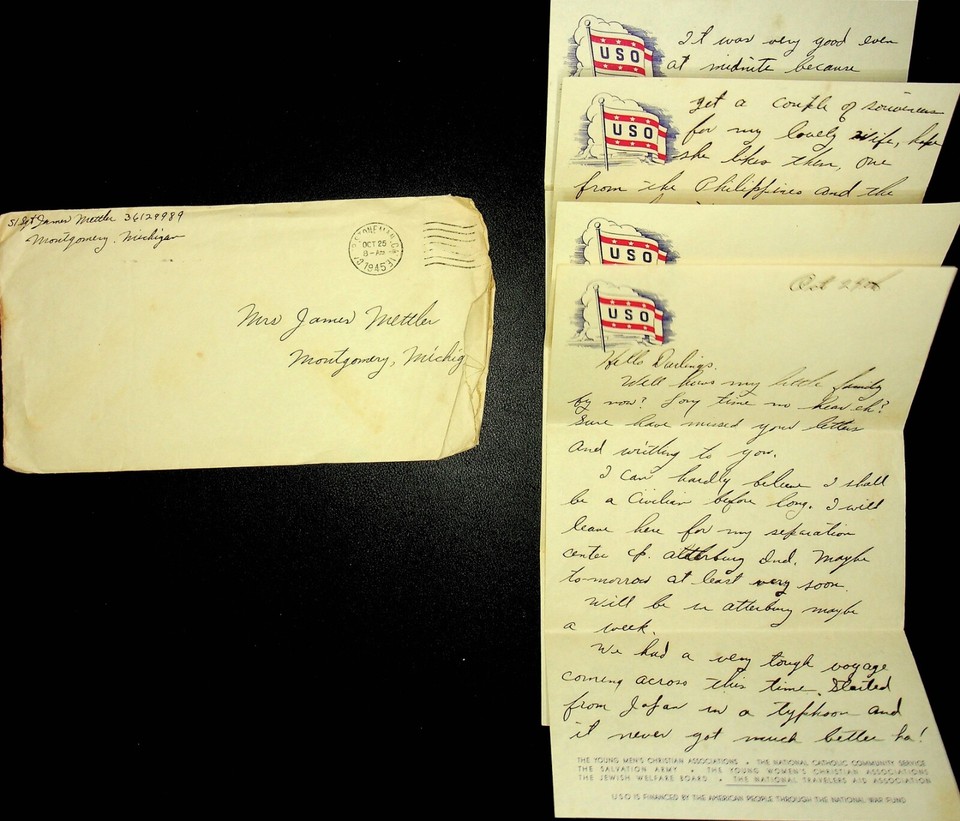 S/Sgt James Mettler 36129989
Montgomery, Michigan
STONEMAN, CA
OCT 25
8-AM
1945
Mrs James Mettler
Montgomery, Michig
USO
It was very good even
at midnite because
USO
get a couple of souveneers
for my lovely wife, hope
she likes them, one
from the Philippines and the
USO
USO
Oct 24th
Hello Darlings.
Well hows my little family
by now? Long time no hear eh?
Sure have missed your letters
and writting to you.
I can hardly believe I shall
be a Civilian before long. I will
leave here for my separation
center Cp. Atterbury Ind. Maybe
to-morrow at least very soon.
Will be in Atterbury maybe
a week.
We had a very tough voyage
coming across this time. Started
from Japan in a typhoon and
it never got much better ha!
THE YOUNG MEN'S CHRISTIAN ASSOCIATIONS • THE NATIONAL CATHOLIC COMMUNITY SERVICE
THE SALVATION ARMY • THE YOUNG WOMEN'S CHRISTIAN ASSOCIATIONS
THE JEWISH WELFARE BOARD • THE NATIONAL TRAVELERS AID ASSOCIATION
USO IS FINANCED BY THE AMERICAN PEOPLE THROUGH THE NATIONAL WAR FUND